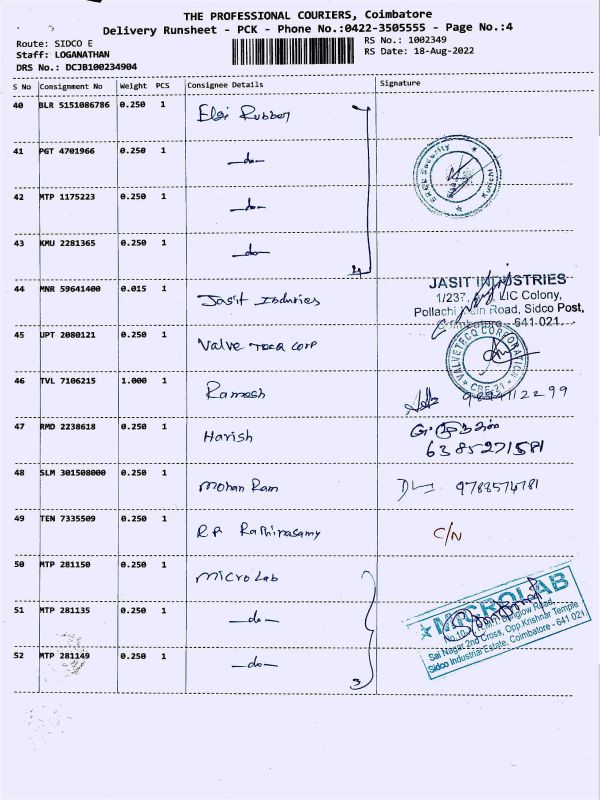 THE PROFESSIONAL COURIERS, Coimbatore
Delivery Runsheet - PCK - Phone No.:0422-3505555 - Page No.:4
Route: SIDCO E
RS No.: 1002349
Staff: LOGANATHAN
RS Date: 18-Aug-2022
DRS No.: DCJB100234904
S No Consignment No Weight PCS Consignee Details Signature
40 BLR 5151086786 0.250 1 Elgi Rubber
41 PGT 4701966 0.250 1 —do—
42 MTP 1175223 0.250 1 —do—
43 KMU 2281365 0.250 1 —do— 4
Security
44 MNR 59641400 0.015 1 Jasit Industries
JASIT INDUSTRIES
1/237, LIC Colony,
Pollachi Main Road, Sidco Post,
Coimbatore - 641 021.
45 UPT 2080121 0.250 1 Valve Tecq Corp
VALVETECQ CORPORATION
CBE-21
46 TVL 7106215 1.000 1 Ramesh
47 RMD 2238618 0.250 1 Harish
6385271581
48 SLM 301508000 0.250 1 Mohan Ram 9788574781
49 TEN 7335509 0.250 1 R.P. Rathinasamy C/N
50 MTP 281150 0.250 1 Micro Lab
51 MTP 281135 0.250 1 —do—
52 MTP 281149 0.250 1 —do— 3
MICROLAB
Sai Nagar 2nd Cross, Opp.Krishnar Temple
Sidco Industrial Estate, Coimbatore - 641 021.